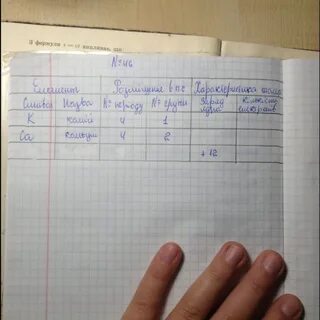 З формули
№ 46
Елемент Розміщення в п.с Характеристика атома
Символ Назва № періоду № групи заряд ядра кількість електронів
K калій 4 1
Ca кальцій 4 2
+12